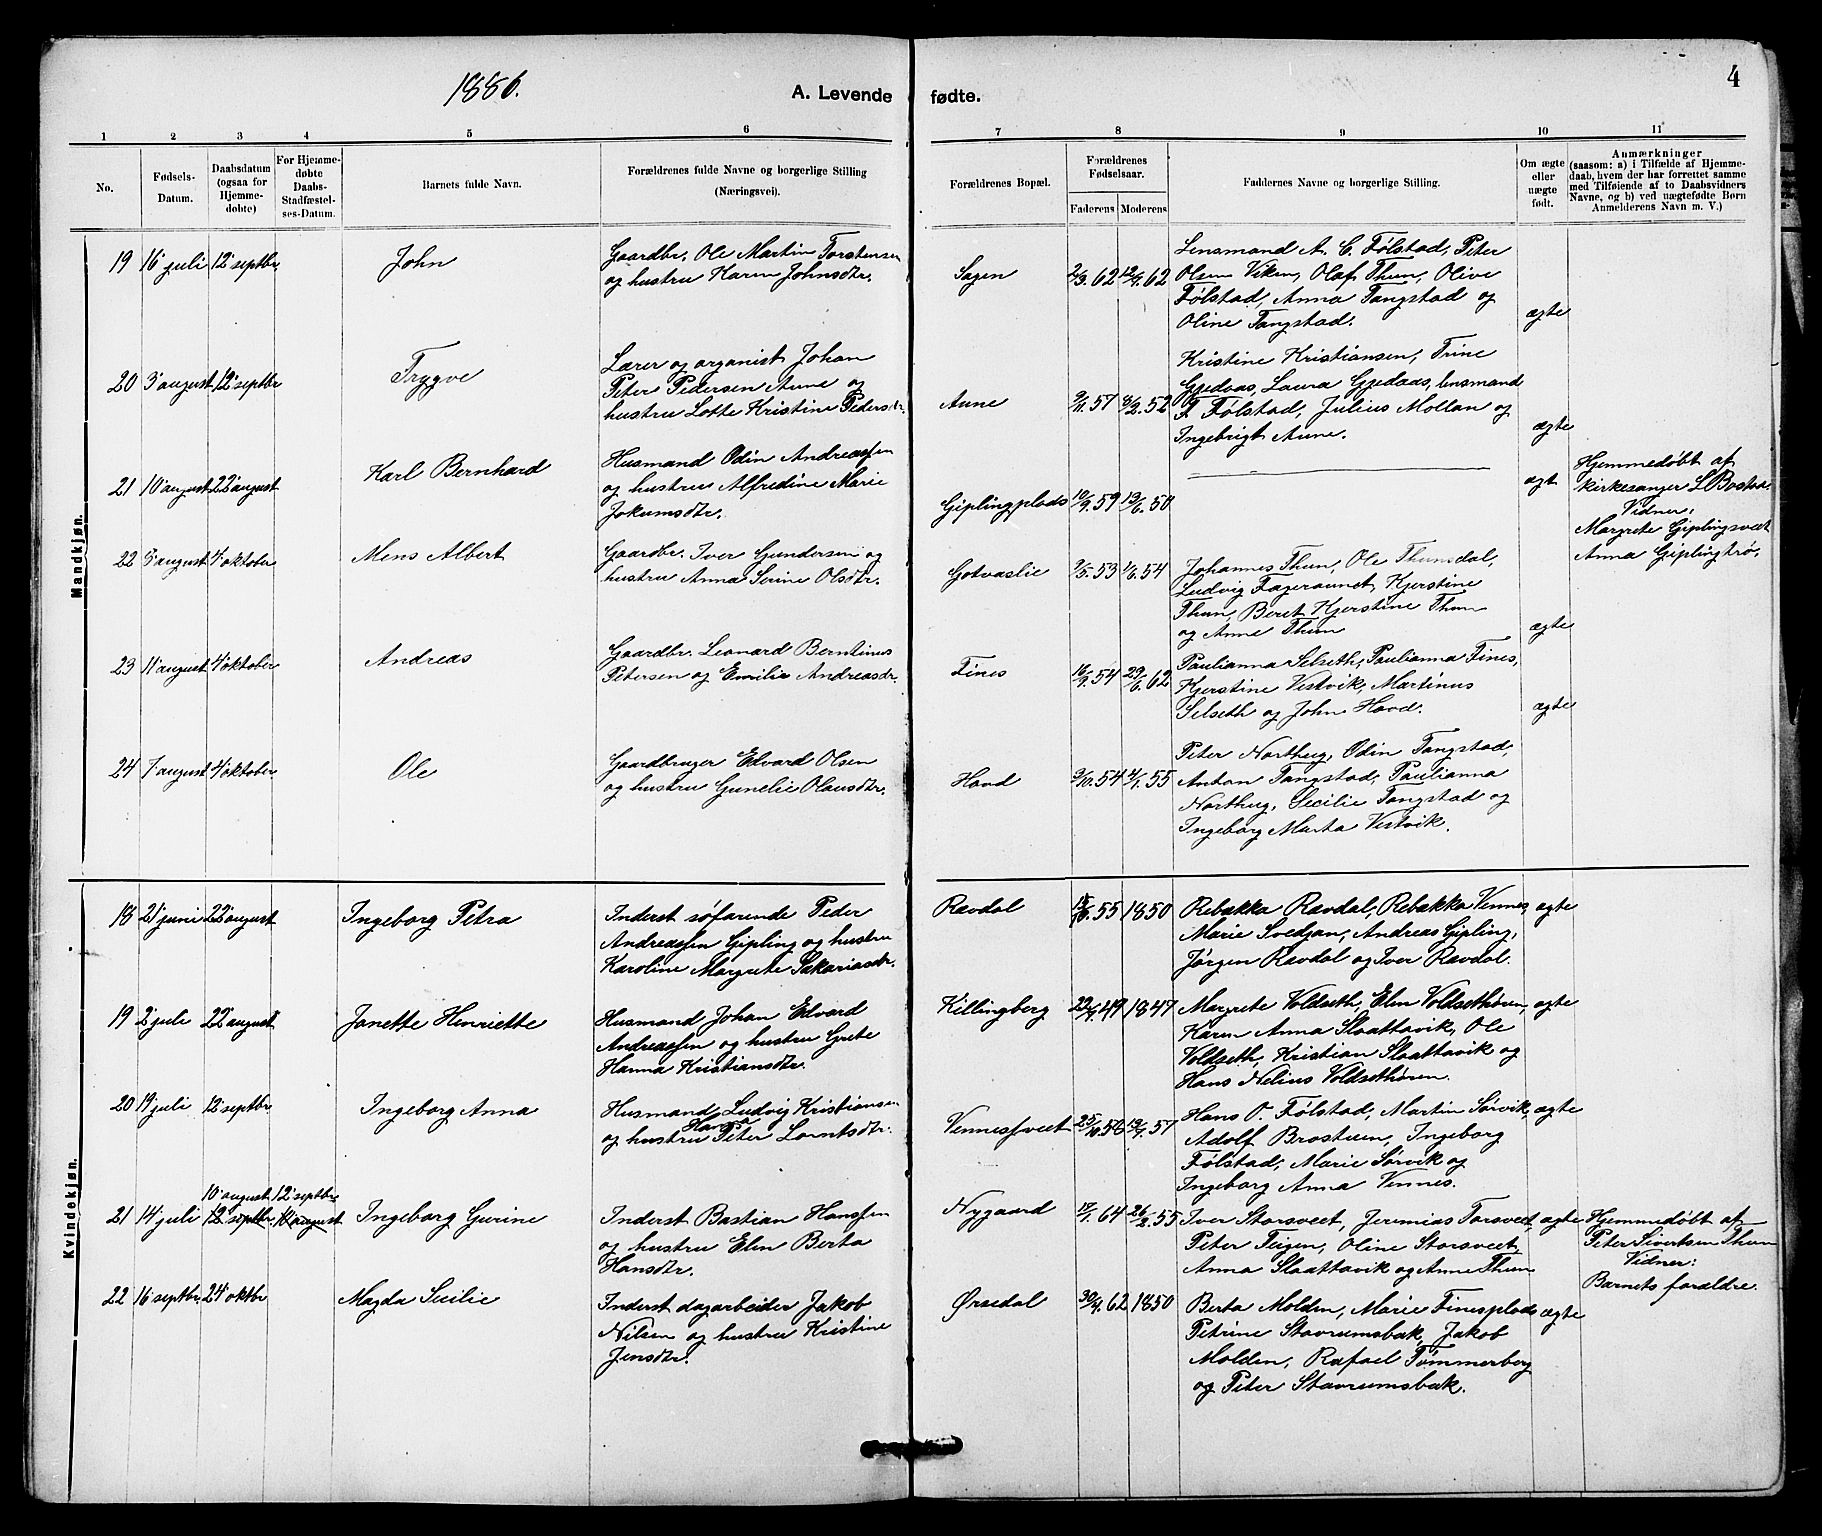 1886.
A. Levende fødte.
4
1 2 3 4 5 6 7 8 9 10 11
No.
Fødsels-Datum.
Daabsdatum (ogsaa for Hjemme-døbte)
For Hjemme-døbte Daabs-Stadfæstel-ses-Datum.
Barnets fulde Navn.
Forældrenes fulde Navne og borgerlige Stilling (Næringsvei).
Forældrenes Bopæl.
Forældrenes Fødselsaar.
Faderens Moderens
Faddernes Navne og borgerlige Stilling.
Om ægte eller uægte født.
Anmærkninger
(saasom: a) i Tilfælde af Hjemme-
daab, hvem der har forrettet samme
med Tilføiende af to Daabsvidners
Navne, og b) ved uægtefødte Børn
Anmelderens Navn m. V.)
Mandkjøn.
19 16 juli 12 septbr John
Gaardbr. Ole Martin Torstensen
og hustru Karen Johnsdtr.
Sagen 2/3.62 12/9.62
Lensmand A. C. Følstad, Peter
Olsen Viken, Olaf Thun, Olive
Følstad, Anna Tangstad og
Oline Tangstad.
ægte
20 3 august 12 septbr Trygve
Lærer og organist Johan
Peter Pedersen Aune og
hustru Lotte Kristine Pedersdr.
Aune 9/11.57 8/2.52
Kristine Kristiansen, Trine
Gjedaas, Laura Gjedaas, lensmand
F Følstad, Julius Mollan og
Ingebrigt Aune.
ægte
21 10 august 22 august Karl Bernhard
Husmand Odin Andreassen
og hustru Alfredine Marie
Jokumsdtr.
Giplingplads 10/9.59 13/6.50
ægt
Hjemmedøbt af
kirkesanger L Bostad.
Vidner:
Margrete Giplingsveet
Anna Giplingtrø.
22 5 august 4 oktober Mens Albert
Gaardbr. Iver Gundersen og
hustru Anna Serine Olsdtr.
Gotvaslie 7/5.53 1/6.54
Johannes Thun, Ole Thunsdal,
Ludvig Fageraunet, Kjerstine
Thun, Beret Kjerstine Thun
og Anne Thun
ægte
23 11 august 4 oktober Andreas
Gaardbr. Leonard Berntinus
Petersen og Emilie Andreasdr.
Fines 16/9.54 29/6.62
Paulianna Selseth, Paulianna Fines,
Kjerstine Vestvik, Martinus
Selseth og John Hovd.
ægte
24 7 august 4 oktober Ole
Gaardbruger Edvard Olsen
og hustru Gunelie Olausdtr.
Hovd 3/10.54 4/1.55
Peter Northug, Odin Tangstad,
Anton Tangstad, Paulianna
Northug, Secilie Tangstad og
Ingeborg Marta Vestvik.
Kvindekjøn.
18 21 juni 22 august Ingeborg Petra
Inderst søfarende Peder
Andreassen Gipling og hustru
Karoline Margrete Sakariasdr.
Ravdal 15/10.55 1850
Rebækka Ravdal, Rebækka Vennes,
Marie Svedjan, Andreas Gipling,
Jørgen Ravdal og Iver Ravdal.
ægte
19 2 juli 22 august Janette Henriette
Husmand Johan Edvard
Andreassen og hustru Grete
Hanna Kristiansdtr.
Killingberg 22/9.49 1847
Margrete Voldseth, Elen Voldsethøren,
Karen Anna Slaattavik, Ole
Voldseth, Kristian Slaattavik og
Hans Nelius Voldsethøren.
ægte
20 19 juli 12 septbr Ingeborg Anna
Husmand Ludvig Kristiansen
og hustru Hansa Peter Lorntsdtr.
Vennesfveet 25/10.56 19/9.57
Hans O. Følstad, Martin Sørvik,
Adolf Brostuen, Ingeborg
Følstad, Marie Sørvik og
Ingeborg Anna Vennes.
ægte
10 august 12 septbr.
21 14 juli 12 septbr. 10 august Ingeborg Gurine
Inderst Bastian Hansen
og hustru Elen Berta
Hansdtr.
Nygaard 17/1.64 26/2.55
Iver Storsveet, Jeremias Torsveet,
Peter Teigen, Oline Storsveet,
Anna Slaattavik og Anne Thun
ægte
Hjemmedøbt af
Peter Sivertsen Thun
Vidner:
Barnets forældre.
22 16 septbr. 24 oktbr Magda Secilie
Inderst dagarbeider Jakob
Nilsen og hustru Kristine
Jensdtr.
Ørsedal 30/4.62 1850
Berta Molden, Marie Finesplads
Petrine Stavrumsbak, Jakob
Molden, Rafael Tømmerberg
og Peter Stavrumsbak.
ægte